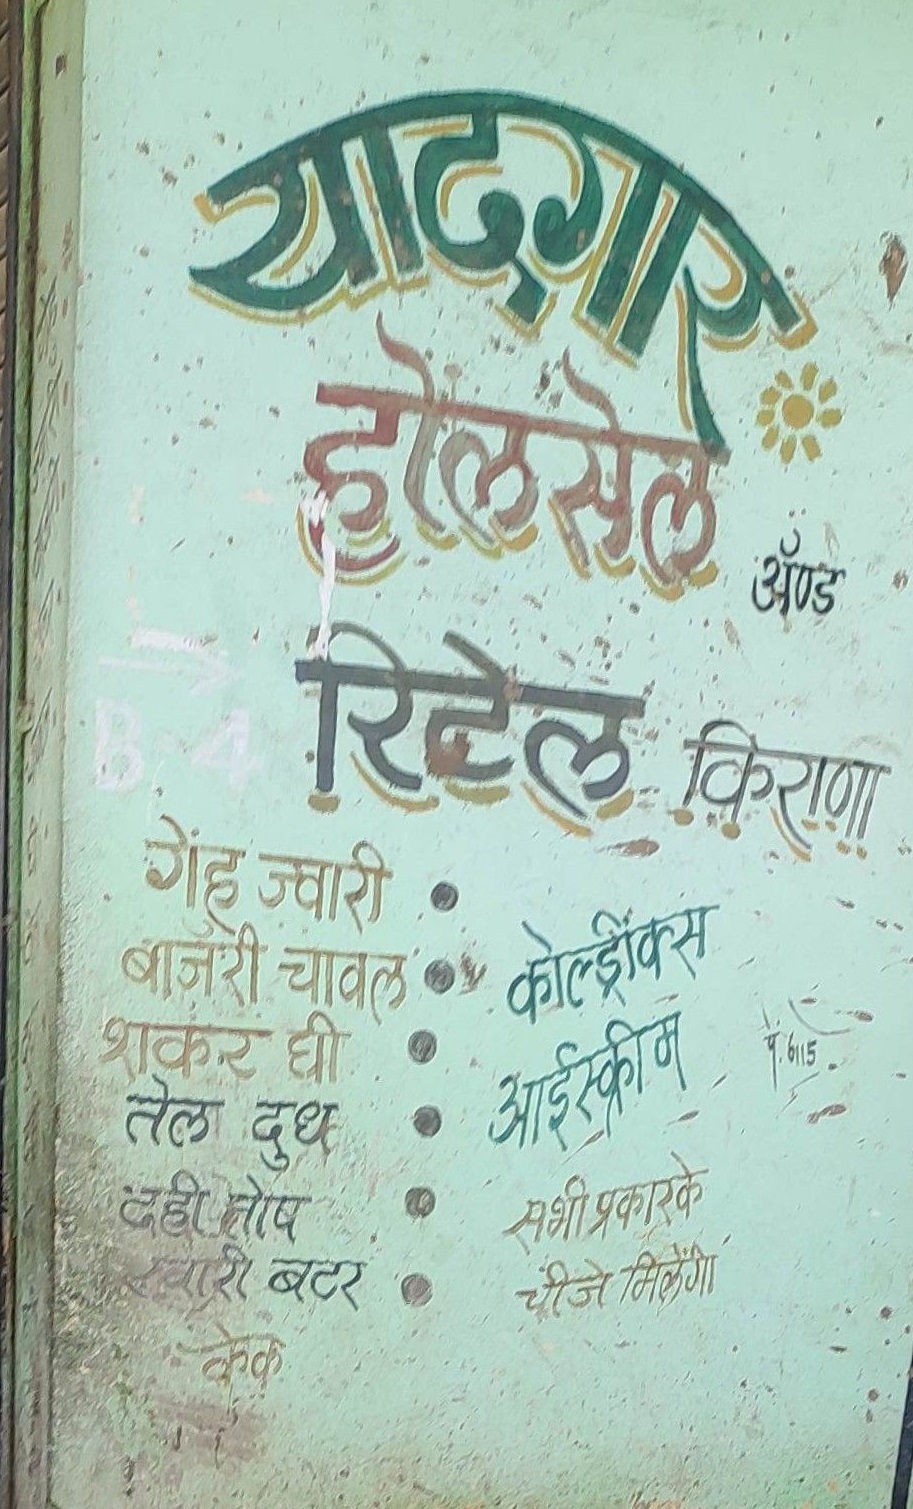 यादगार
होलसेल
अॅण्ड
रिटेल किराणा
B-4
गेंहू ज्वारी
बाजरी चावल
शकर घी
तेल दुध
दही तोष
खारी बटर
केक
कोल्ड्रींक्स
आईस्क्रीम
सभी प्रकारके
चीजे मिलेंगी
पें. 6115